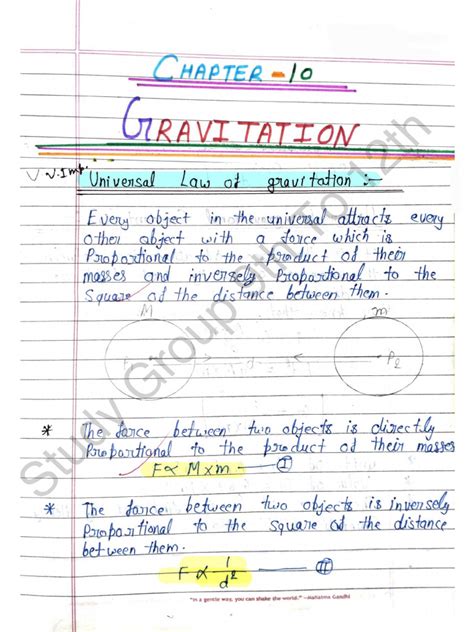 CHAPTER - 10
GRAVITATION
V.V.Imp.
Universal Law of gravitation :-
Every object in the universal attracts every
other object with a force which is
Proportional to the product of their
masses and inversely Proportional to the
Square of the distance between them.
M m
P2
* The force between two objects is directly
Proportional to the product of their masses
F∝ M×m — I
* The force between two objects is inversely
Proportional to the square of the distance
between them.
F ∝ 1/d² — II
"In a gentle way, you can shake the world." —Mahatma Gandhi
Study Group 9th To 12th